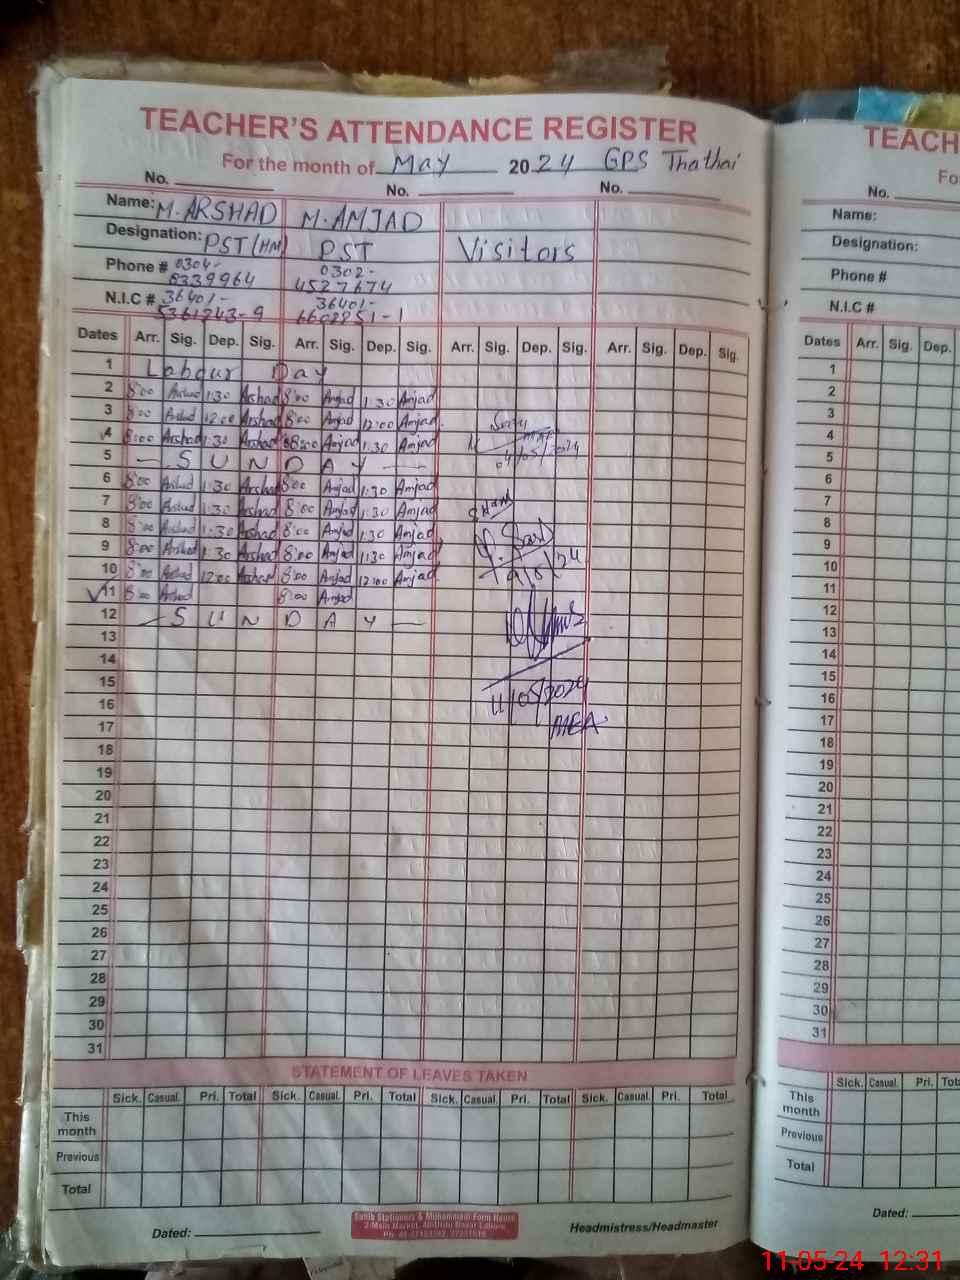 TEACHER'S ATTENDANCE REGISTER
For the month of May 2024 GPS Thathai
No. No. No.
Name: M. ARSHAD M. AMJAD
Designation: PST (HM) PST Visitors
Phone # 0304- 0302-
6339964 4527674
N.I.C # 36401- 36401-
5361243-9
Dates Arr. Sig. Dep. Sig. Arr. Sig. Dep. Sig. Arr. Sig. Dep. Sig. Arr. Sig. Dep. Sig.
1 Labour Day
2 8:00 Arshad 1:30 Arshad 8:00 Amjad 1:30 Amjad
3 8:00 Arshad 12:00 Arshad 8:00 Amjad 12:00 Amjad
4 8:00 Arshad 1:30 Arshad 8:00 Amjad 1:30 Amjad
04/05/2024
5 — S U N D A Y —
6 8:00 Arshad 1:30 Arshad 8:00 Amjad 1:30 Amjad
7 8:00 Arshad 1:30 Arshad 8:00 Amjad 1:30 Amjad
8 8:00 Arshad 1:30 Arshad 8:00 Amjad 1:30 Amjad
9 8:00 Arshad 1:30 Arshad 8:00 Amjad 1:30 Amjad
10 8:00 Arshad 12:00 Arshad 8:00 Amjad 12:00 Amjad
11 8:00 Arshad 8:00 Amjad
12 — S U N D A Y —
13
14
15
16 11/05/2024
17 MEA
18
19
20
21
22
23
24
25
26
27
28
29
30
31
STATEMENT OF LEAVES TAKEN
Sick. Casual. Pri. Total Sick. Casual. Pri. Total Sick. Casual. Pri. Total Sick. Casual. Pri. Total
This month
Previous
Total
Dated: Headmistress/Headmaster
TEACH
Fo
No.
Name:
Designation:
Phone #
N.I.C #
Dates Arr. Sig. Dep.
1
2
3
4
5
6
7
8
9
10
11
12
13
14
15
16
17
18
19
20
21
22
23
24
25
26
27
28
29
30
31
Sick. Casual. Pri. Tota
This month
Previous
Total
Dated:
11-05-24 12:31